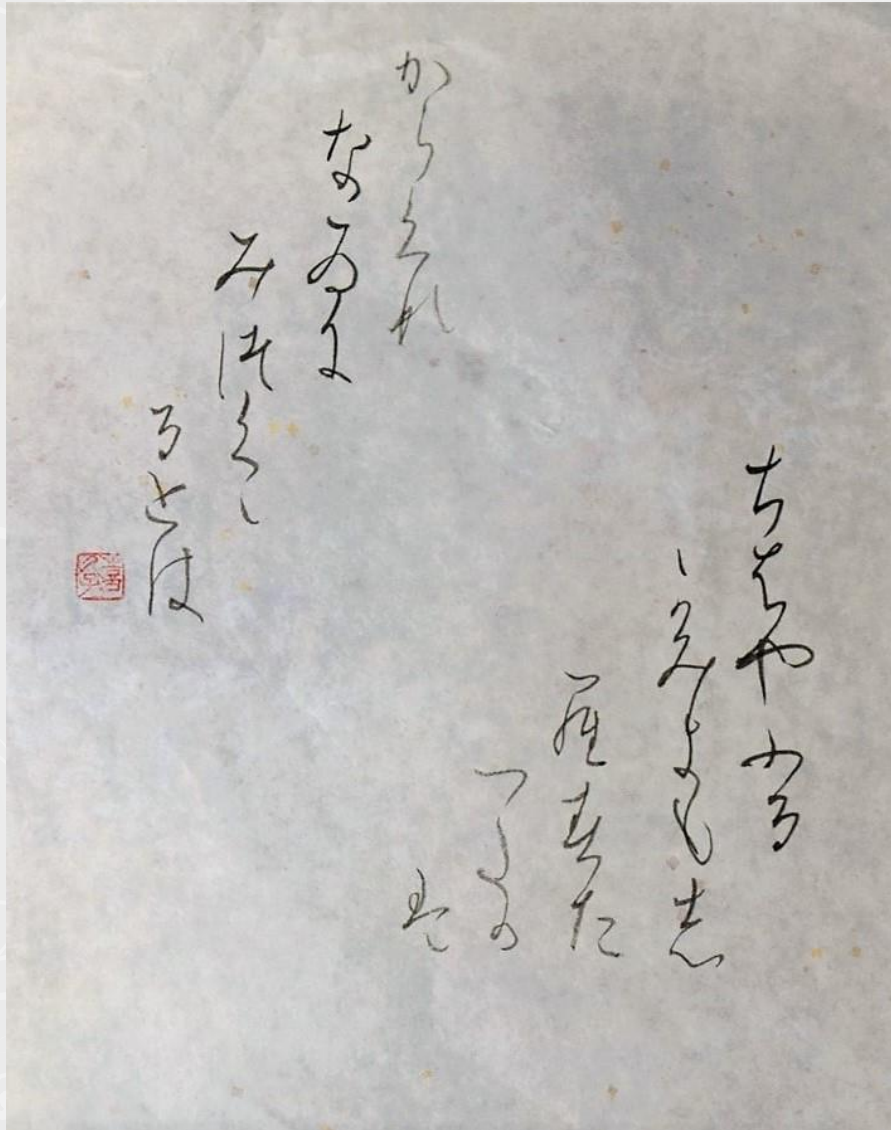 ちはやふる
かみよもき
かすた
つたか
は
からくれ
なゐに
みつくゝ
るとは